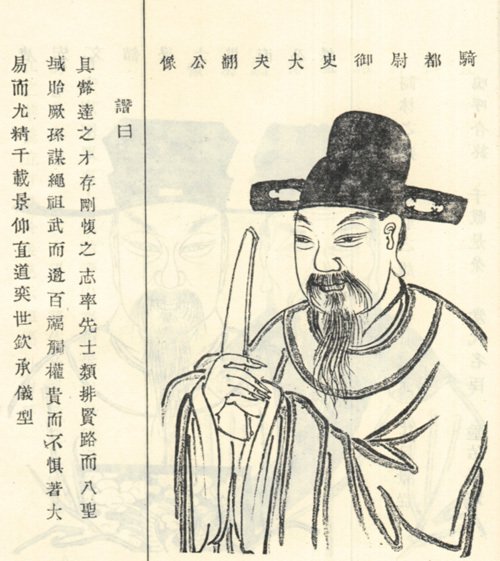 騎都尉御史大夫翻公像
曰
具達之才存剛愎之志率先士類排賢路而入聖
域貽厥孫謀繩祖武而遒百福觸權貴而不惧著大
易而尤精千載景仰直道奕世欽承儀型